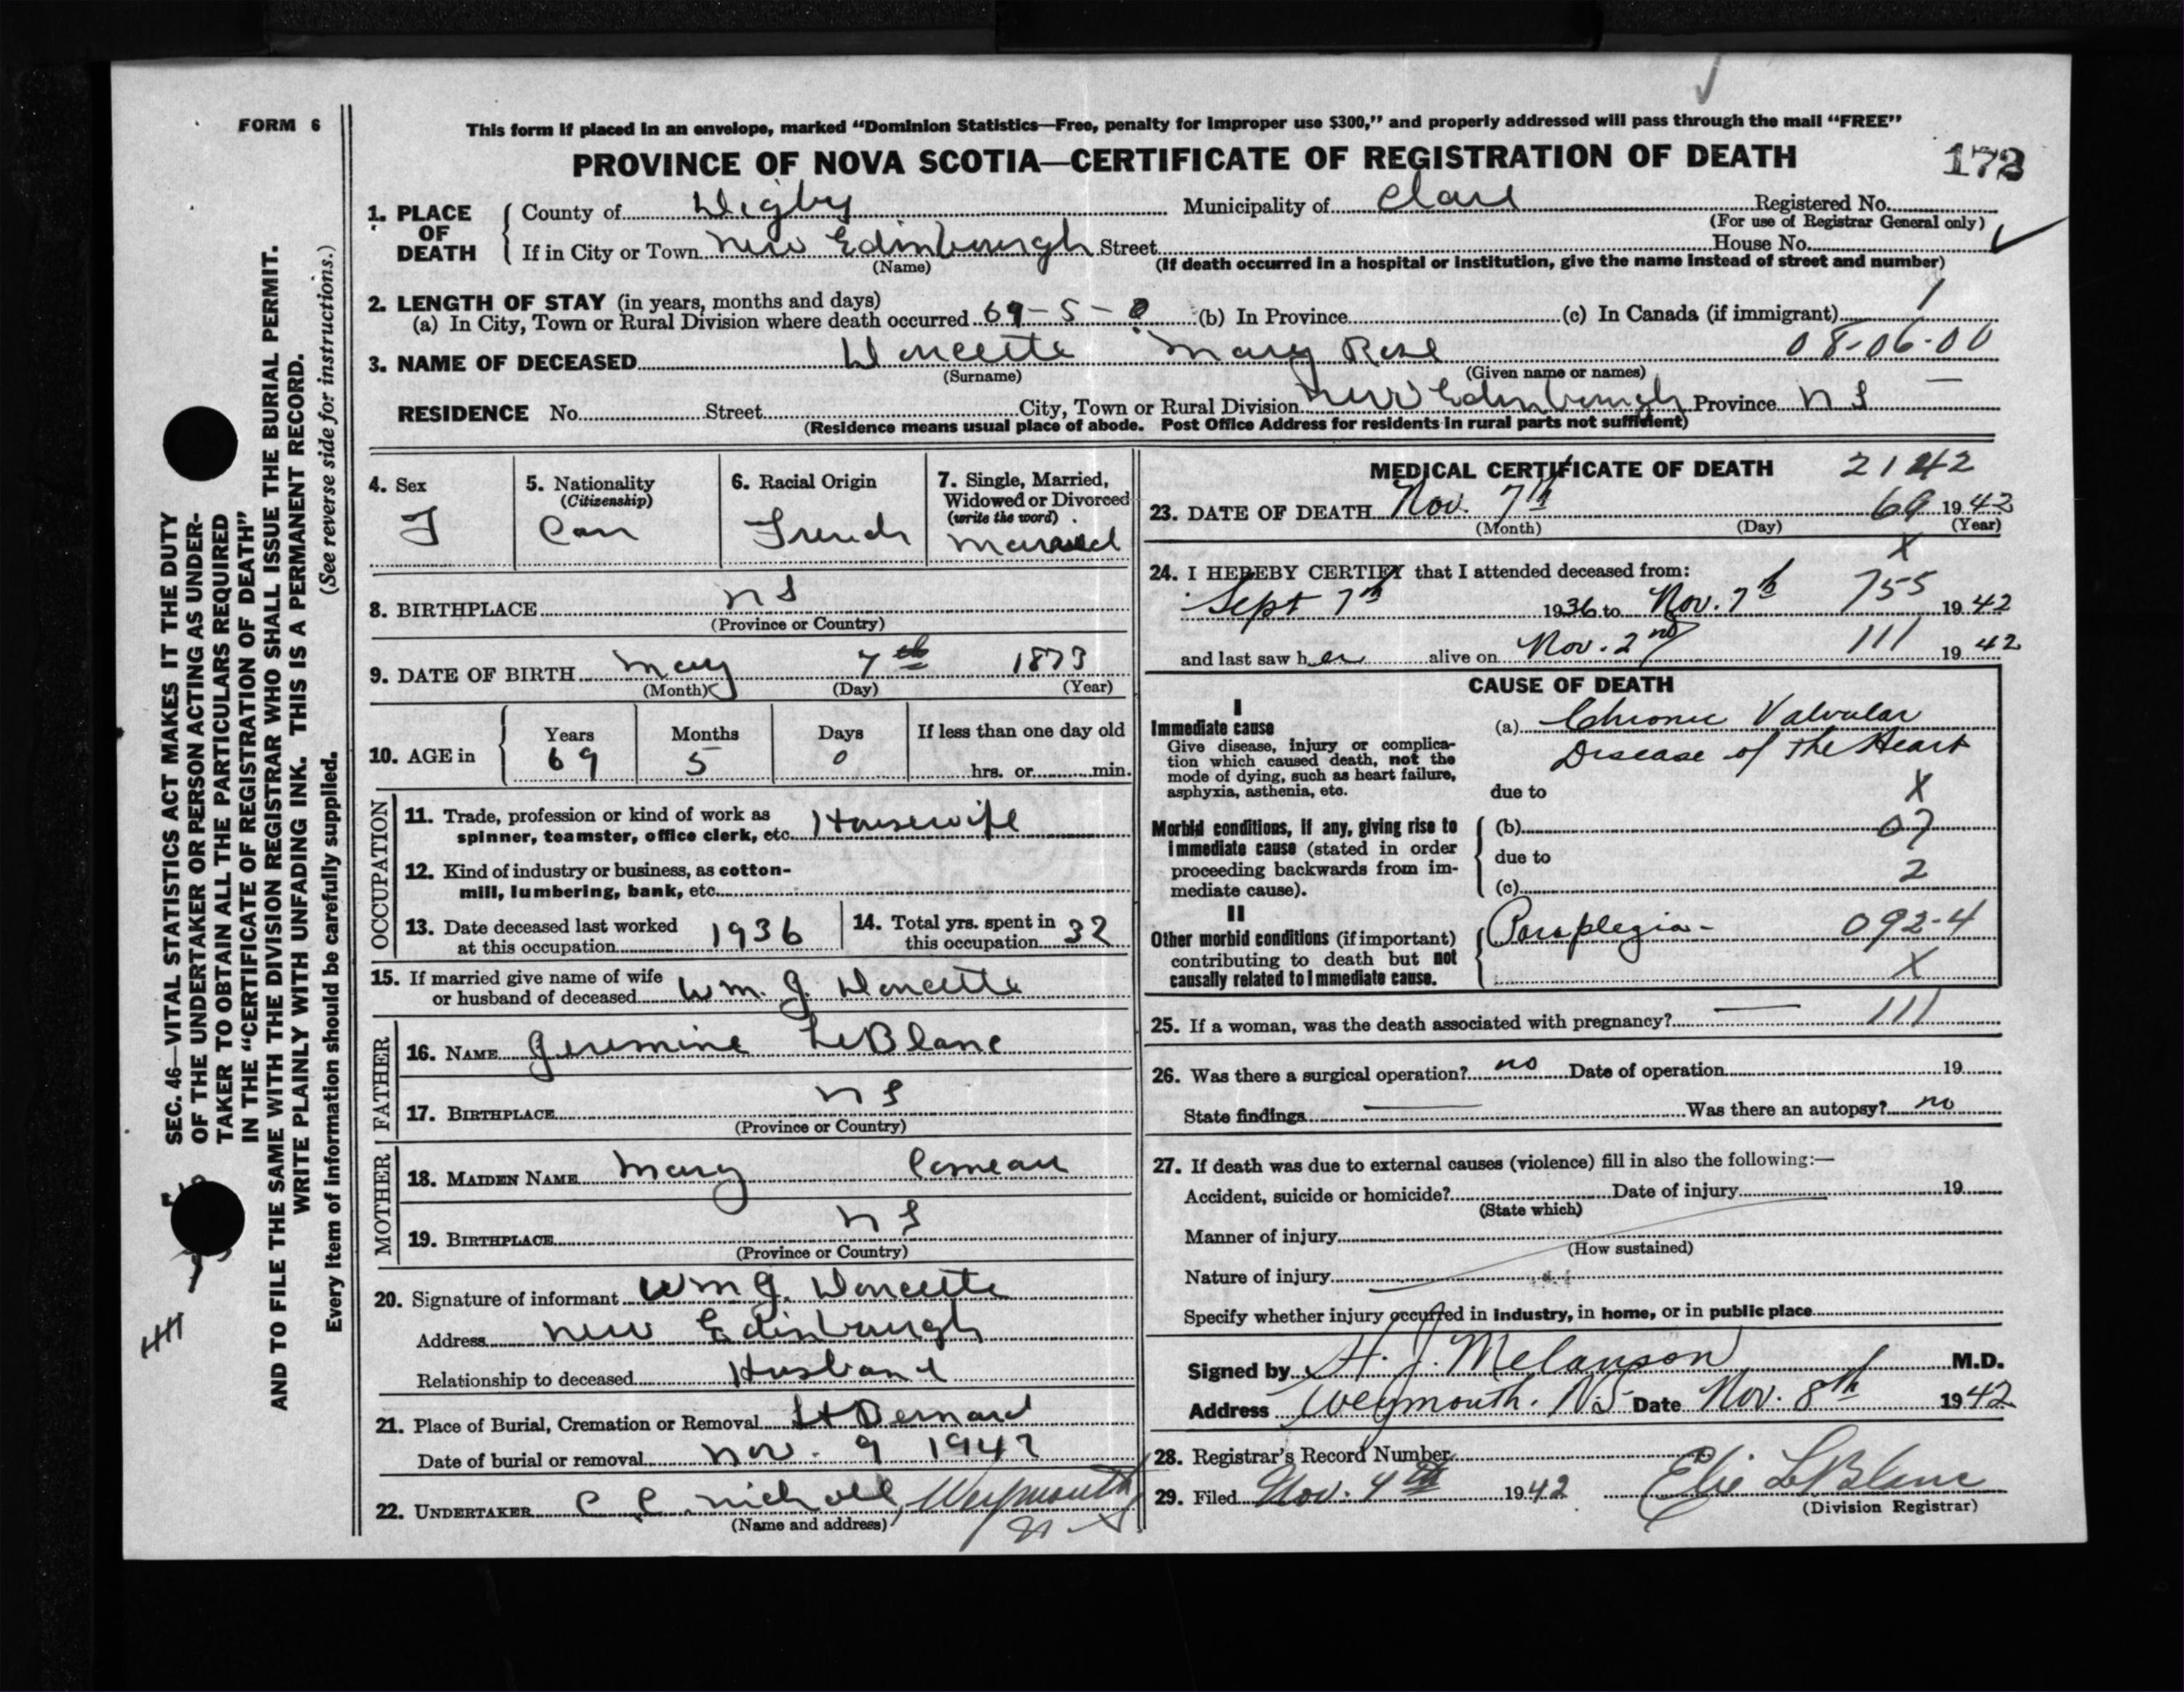 FORM 6
This form if placed in an envelope, marked “Dominion Statistics—Free, penalty for improper use $300,” and properly addressed will pass through the mail “FREE”
PROVINCE OF NOVA SCOTIA—CERTIFICATE OF REGISTRATION OF DEATH 172
1. PLACE OF DEATH County of Digby Municipality of Clare Registered No.
(For use of Registrar General only)
If in City or Town New Edinbourgh Street House No.
(Name) (If death occurred in a hospital or institution, give the name instead of street and number)
2. LENGTH OF STAY (in years, months and days) 1
(a) In City, Town or Rural Division where death occurred 69-5-0 (b) In Province (c) In Canada (if immigrant)
3. NAME OF DECEASED Doucette Mary Rose 08-06-00
(Surname) (Given name or names)
RESIDENCE No. Street City, Town or Rural Division New Edinbourgh Province N S
(Residence means usual place of abode. Post Office Address for residents in rural parts not sufficient)
4. Sex
F
5. Nationality
(Citizenship)
Can
6. Racial Origin
French
7. Single, Married,
Widowed or Divorced
(write the word)
Married
8. BIRTHPLACE N S
(Province or Country)
9. DATE OF BIRTH May 7th 1873
(Month) (Day) (Year)
10. AGE in Years Months Days If less than one day old
69 5 0 hrs. or min.
OCCUPATION
11. Trade, profession or kind of work as
spinner, teamster, office clerk, etc. Housewife
12. Kind of industry or business, as cotton-
mill, lumbering, bank, etc.
13. Date deceased last worked
at this occupation 1936
14. Total yrs. spent in
this occupation 32
15. If married give name of wife
or husband of deceased Wm. J. Doucette
FATHER
16. NAME Jeremine LeBlanc
17. BIRTHPLACE N S
(Province or Country)
MOTHER
18. MAIDEN NAME Mary Comeau
19. BIRTHPLACE N S
(Province or Country)
20. Signature of informant Wm J. Doucette
Address New Edinbourgh
Relationship to deceased Husband
21. Place of Burial, Cremation or Removal St Bernard
Date of burial or removal Nov. 9 1942
22. UNDERTAKER C C Nicholl, Weymouth
(Name and address) N S
MEDICAL CERTIFICATE OF DEATH 2142
23. DATE OF DEATH Nov. 7th 69 1942
(Month) (Day) (Year)
X
24. I HEREBY CERTIFY that I attended deceased from:
Sept 7th 1936 to Nov. 7th 755 1942
and last saw her alive on Nov. 2nd 111 1942
CAUSE OF DEATH
I
Immediate cause
Give disease, injury or complica-
tion which caused death, not the
mode of dying, such as heart failure,
asphyxia, asthenia, etc.
(a) Chronic Valvular
Disease of the Heart
due to X
Morbid conditions, if any, giving rise to
immediate cause (stated in order
proceeding backwards from im-
mediate cause).
(b) 07
due to 2
(c)
II
Other morbid conditions (if important)
contributing to death but not
causally related to immediate cause.
Paraplegia- 092-4
X
25. If a woman, was the death associated with pregnancy? — 111
26. Was there a surgical operation? no Date of operation 19
State findings — Was there an autopsy? no
27. If death was due to external causes (violence) fill in also the following:—
Accident, suicide or homicide? Date of injury 19
(State which)
Manner of injury
(How sustained)
Nature of injury
Specify whether injury occurred in industry, in home, or in public place
Signed by H. J. Melanson M.D.
Address Weymouth. N.S Date Nov. 8th 1942
28. Registrar's Record Number
29. Filed Nov. 9th 1942 Elie LeBlanc
(Division Registrar)
SEC. 46—VITAL STATISTICS ACT MAKES IT THE DUTY
OF THE UNDERTAKER OR PERSON ACTING AS UNDER-
TAKER TO OBTAIN ALL THE PARTICULARS REQUIRED
IN THE “CERTIFICATE OF REGISTRATION OF DEATH”
AND TO FILE THE SAME WITH THE DIVISION REGISTRAR WHO SHALL ISSUE THE BURIAL PERMIT.
WRITE PLAINLY WITH UNFADING INK. THIS IS A PERMANENT RECORD.
Every item of information should be carefully supplied. (See reverse side for instructions.)